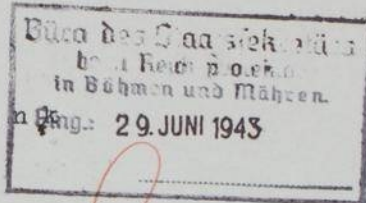 Büro des Staatssekretärs
beim Reichsprotektor
in Böhmen und Mähren.
Eing.: 29. JUNI 1943